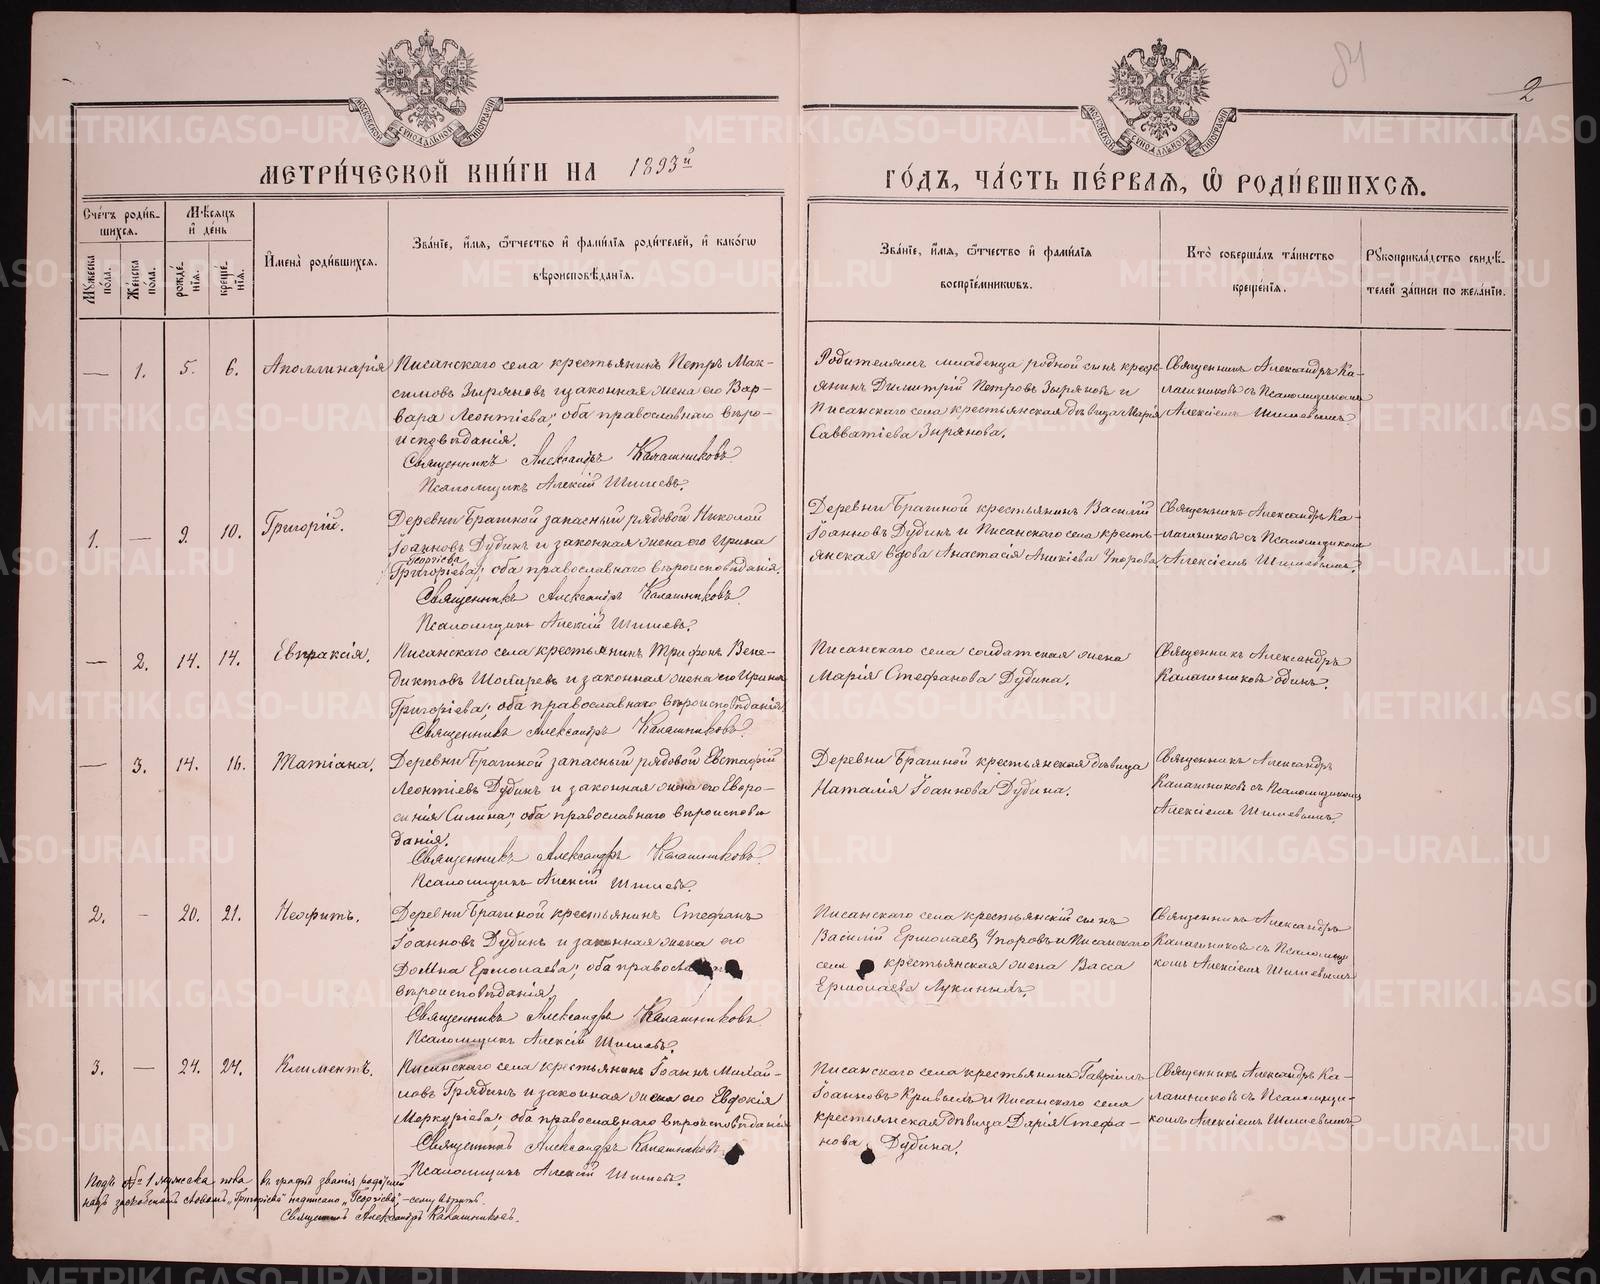 84
2
МОСКОВСКОЙ СѴНОДАЛЬНОЙ ТИПОГРАФІИ
МОСКОВСКОЙ СѴНОДАЛЬНОЙ ТИПОГРАФІИ
МЕТРИ́ЧЕСКОЙ КНИ́ГИ НА 1893й ГО́ДЪ, ЧА́СТЬ ПЕ́РВАЯ, Ѡ РОДИ́ВШИХСЯ.
Сче́тъ роди́в-
шихся.
Мꙋжеска по́ла.
Же́нска по́ла.
Мѣсяцъ и҆ де́нь
рожде́нїя.
креще́нїя.
И҆мена̀ роди́вшихся.
Зва́нїе, и҆́мя, ѻ҆́тчество и҆ фами́лїя роди́телей, и҆ како́гѡ
вѣроисповѣ́данїя.
Зва́нїе, и҆́мя, ѻ҆́тчество и҆ фами́лїя
воспрїе́мникѡвъ.
Кто̀ соверша́лъ та́инство
креще́нїя.
Рꙋкоприкла́дство свидѣ́-
телей за́писи по жела́нїю.
— 1. 5. 6. Аполлинарія
Писанскаго села крестьянинъ Петръ Мак-
симовъ Зыряновъ и законная жена его Вар-
вара Леонтіева; оба православнаго вѣро-
исповѣданія.
Священникъ Александръ Калашниковъ.
Псаломщикъ Алексій Шишевъ.
Родителямъ младенца родной сынъ кресть-
янинъ Димитрій Петровъ Зыряновъ и
Писанскаго села крестьянская дѣвица Марія
Савватіева Зырянова.
Священникъ Александръ Ка-
лашниковъ съ Псаломщикомъ
Алексіемъ Шишевымъ.
1. — 9. 10. Григорій.
Деревни Брагиной запасный рядовой Николай
Іоанновъ Дудинъ и законная жена его Ирина
Георгіева
Григоріева; оба православнаго вѣроисповѣданія.
Священникъ Александръ Калашниковъ.
Псаломщикъ Алексій Шишевъ.
Деревни Брагиной крестьянинъ Василій
Іоанновъ Дудинъ и Писанскаго села кресть-
янская вдова Анастасія Аникіева Упорова
Священникъ Александръ Ка-
лашниковъ съ Псаломщикомъ
Алексіемъ Шишевымъ.
— 2. 14. 14. Евпраксія.
Писанскаго села крестьянинъ Трифонъ Вене-
диктовъ и законная жена его Ирина
Григоріева; оба православнаго вѣроисповѣданія
Священникъ Александръ Калашниковъ.
Писанскаго села солдатская жена
Марія Стефанова Дудина.
Священникъ Александръ
Калашниковъ одинъ.
— 3. 14. 16. Татіана.
Деревни Брагиной запасный рядовой Евстафій
Леонтіевъ Дудинъ и законная жена его Евфро-
синія Силина; оба православнаго вѣроисповѣ
данія.
Священникъ Александръ Калашниковъ.
Псаломщикъ Алексій Шишевъ.
Деревни Брагиной крестьянская дѣвица
Наталія Іоаннова Дудина.
Священникъ Александръ
Калашниковъ съ Псаломщикомъ
Алексіемъ Шишевымъ.
2. — 20. 21. Неофитъ.
Деревни Брагиной крестьянинъ Стефанъ
Іоанновъ Дудинъ и законная жена его
Домна Ермолаева; оба православнаго
вѣроисповѣданія.
Священникъ Александръ Калашниковъ.
Псаломщикъ Алексій Шишевъ.
Писанскаго села крестьянскій сынъ
Василій Ермолаевъ Упоровъ и Писанскаго
села крестьянская жена Васса
Ермолаева Лукиныхъ.
Священникъ Александръ
Калашниковъ съ Псаломщи
комъ Алексіемъ Шишевымъ
3. — 24. 24. Климентъ.
Писанскаго села крестьянинъ Іоаннъ Михай-
ловъ Грядинъ и законная жена его Евдокія
Меркуріева; оба православнаго вѣроисповѣданія
Священникъ Александръ Калашниковъ.
Псаломщикъ Алексій Шишевъ.
Писанскаго села крестьянинъ Гавріилъ
Іоанновъ Кривыхъ и Писанскаго села
крестьянская дѣвица Дарія Стефа-
нова Дудина.
Священникъ Александръ Ка-
лашниковъ съ Псаломщи-
комъ Алексіемъ Шишевымъ
Подъ № 1 мужска пола въ графѣ званія родителей
надъ словомъ „Григоріева“ надписано „Георгіева“, – сему вѣрить.
Священникъ Александръ Калашниковъ.
METRIKI.GASO-URAL.RU